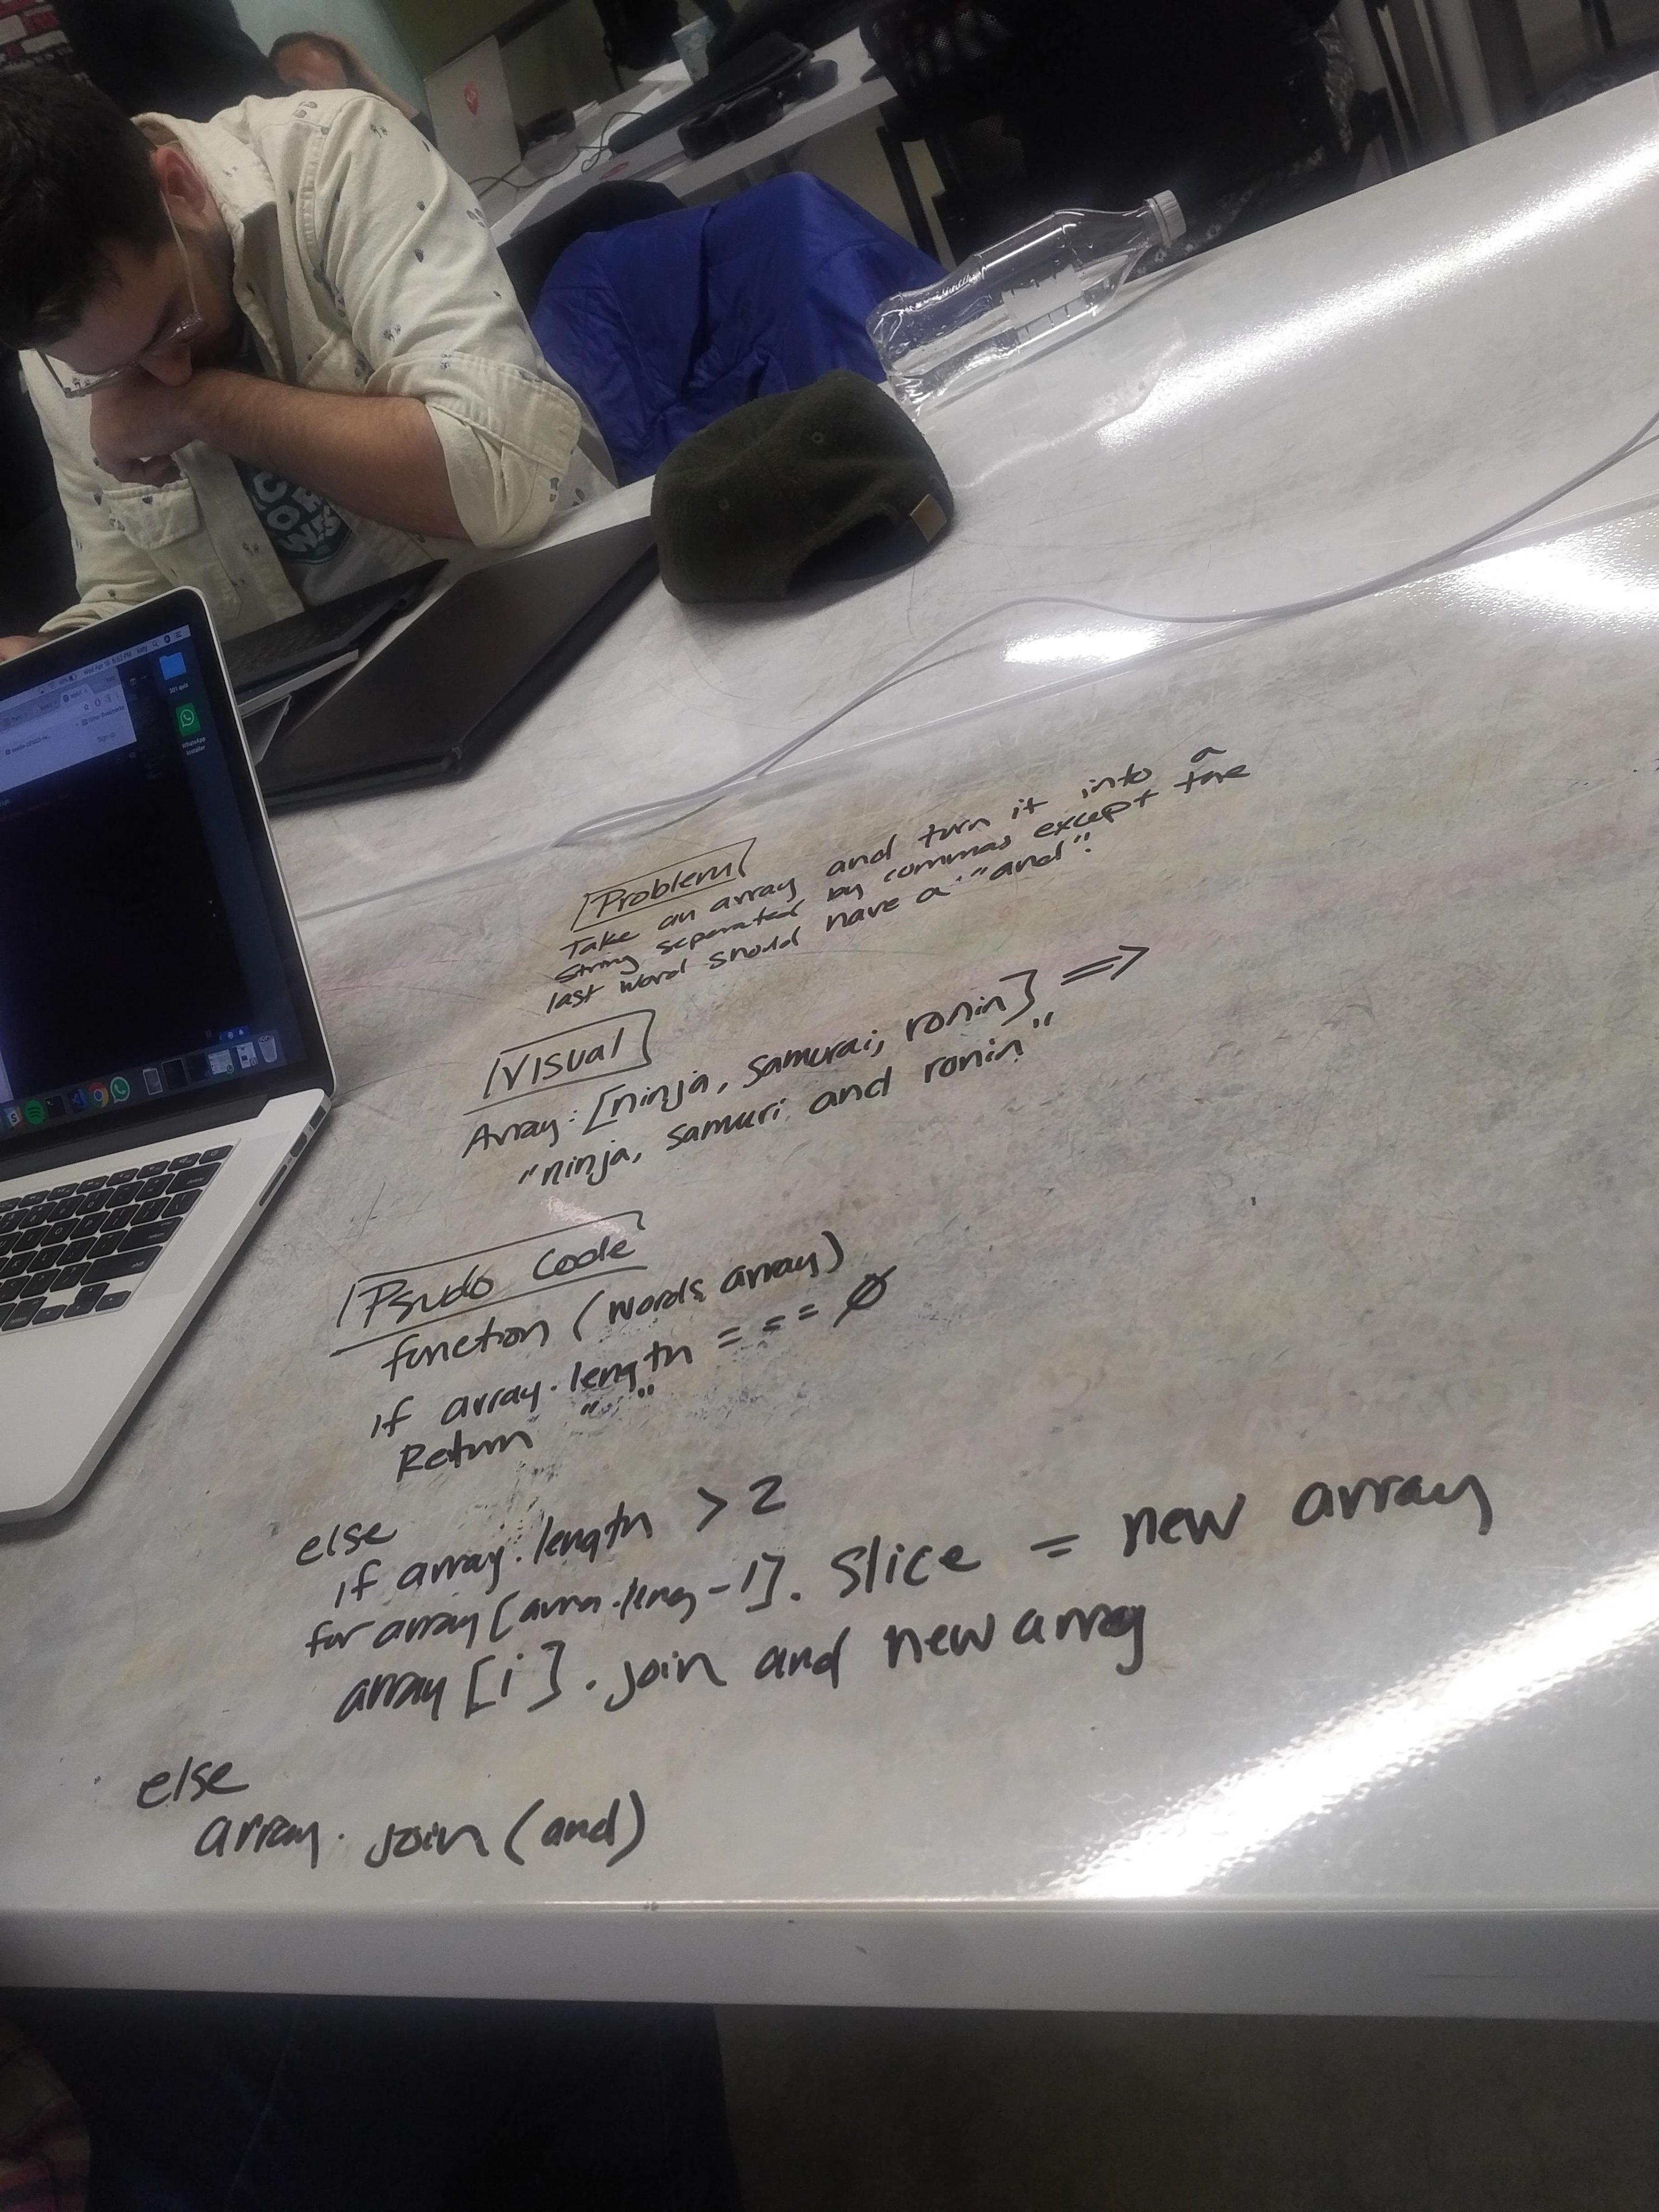 Problem
Take an array and turn it into a
string seperated by commas except the
last word should have a "and".
Visual
Array: [ninja, samurai, ronin] =>
"ninja, samuri and ronin"
Psudo Code
function (words array)
if array.length === Ø
Return " "
else
if array.length > 2
for array [array.leng -1]. Slice = new array
array [i]. join and new array
else
array. join (and)